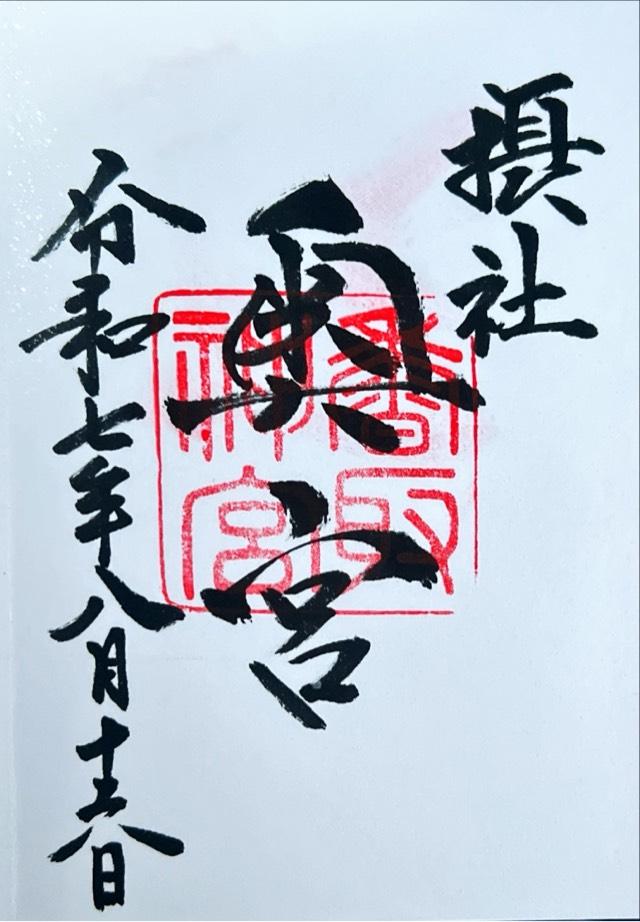 摂社
奥宮
香取
神宮
令和七年八月十六日